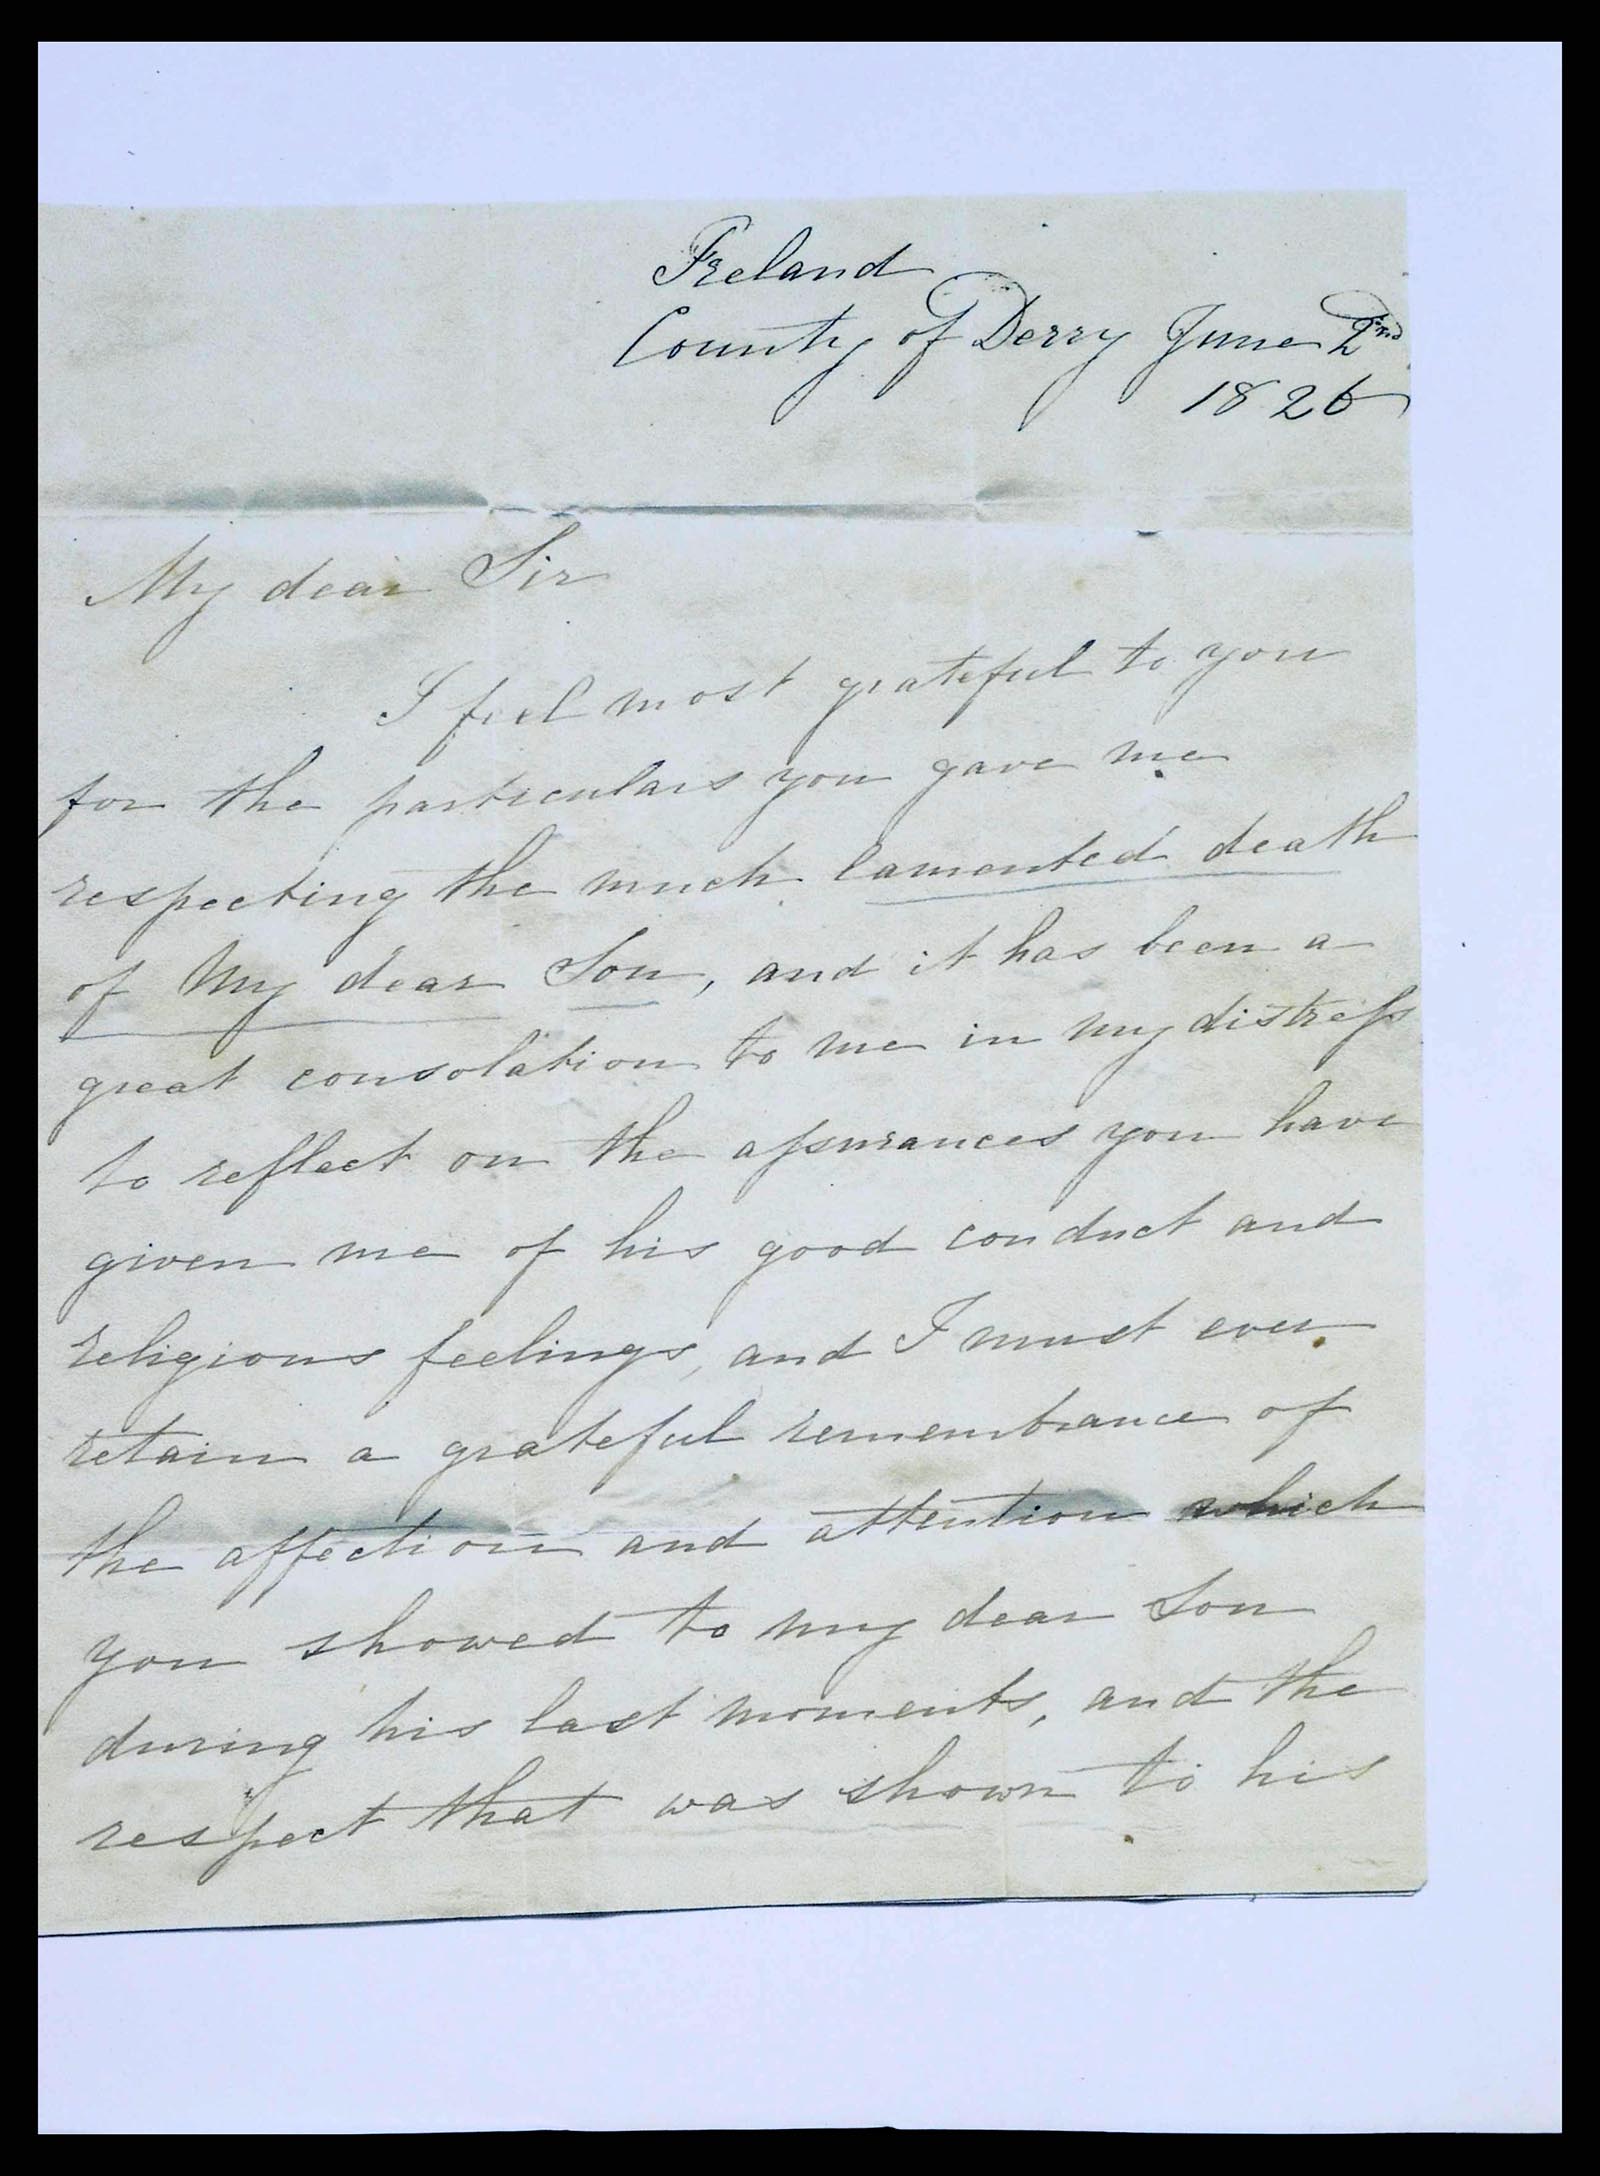 Ireland
County of Derry June 2nd
1826
My dear Sir
I feel most grateful to you
for the particulars you gave me
respecting the much lamented death
of My dear Son, and it has been a
great consolation to me in my distreſs
to reflect on the aſsurances you have
given me of his good conduct and
religious feelings, and I must ever
retain a grateful remembrance of
the affection and attention which
you showed to my dear Son
during his last moments, and the
respect that was shown to his